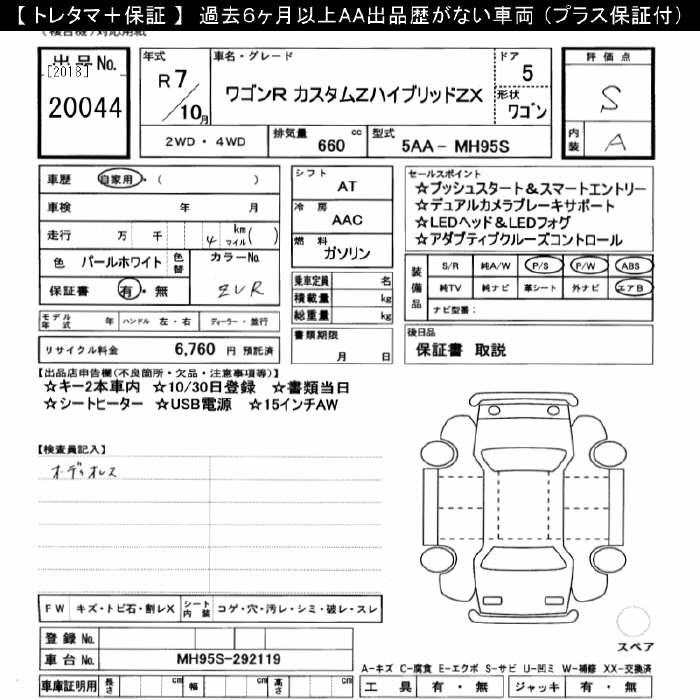 【 トレタマ＋保証 】 過去６ヶ月以上AA出品歴がない車両（プラス保証付）
出品No.
[2018]
20044
年式
R 7/10月
車名・グレード
ワゴンR カスタムZハイブリッドZX
ドア
5
形状
ワゴン
評価点
S
内装
A
2WD・4WD
排気量 660 cc
型式 5AA－MH95S
車歴 自家用・（ ）
車検 年 月
走行 万 千 4 km マイル( )
色 パールホワイト 色替
カラーNo.
ZVR
保証書 有・無
シフト
AT
冷房
AAC
燃料
ガソリン
乗車定員 名
積載量 kg
総重量 kg
セールスポイント
☆プッシュスタート＆スマートエントリー
☆デュアルカメラブレーキサポート
☆LEDヘッド＆LEDフォグ
☆アダプティブクルーズコントロール
装備品
S/R 純A/W P/S P/W ABS
純TV 純ナビ 革シート 外ナビ エアB
ナビ型番：
モデル年式 年 ハンドル 左・右 ディーラー・並行
リサイクル料金 6,760 円 預託済
書類期限
月 日
後日品
保証書 取説
【出品店申告欄(不良箇所・欠品・注意事項等)】
☆キー2本車内 ☆10/30日登録 ☆書類当日
☆シートヒーター ☆USB電源 ☆15インチAW
【検査員記入】
オーディオレス
FW キズ・トビ石・割レX シート内装 コゲ・穴・汚レ・シミ・破レ・スレ
登録No.
車台No. MH95S-292119
車庫証明用 長さ cm 幅 cm 高さ cm
スペア
A-キズ C-腐食 E-エクボ S-サビ U-凹ミ W-補修 XX-交換済
工具 有・無 ジャッキ 有・無